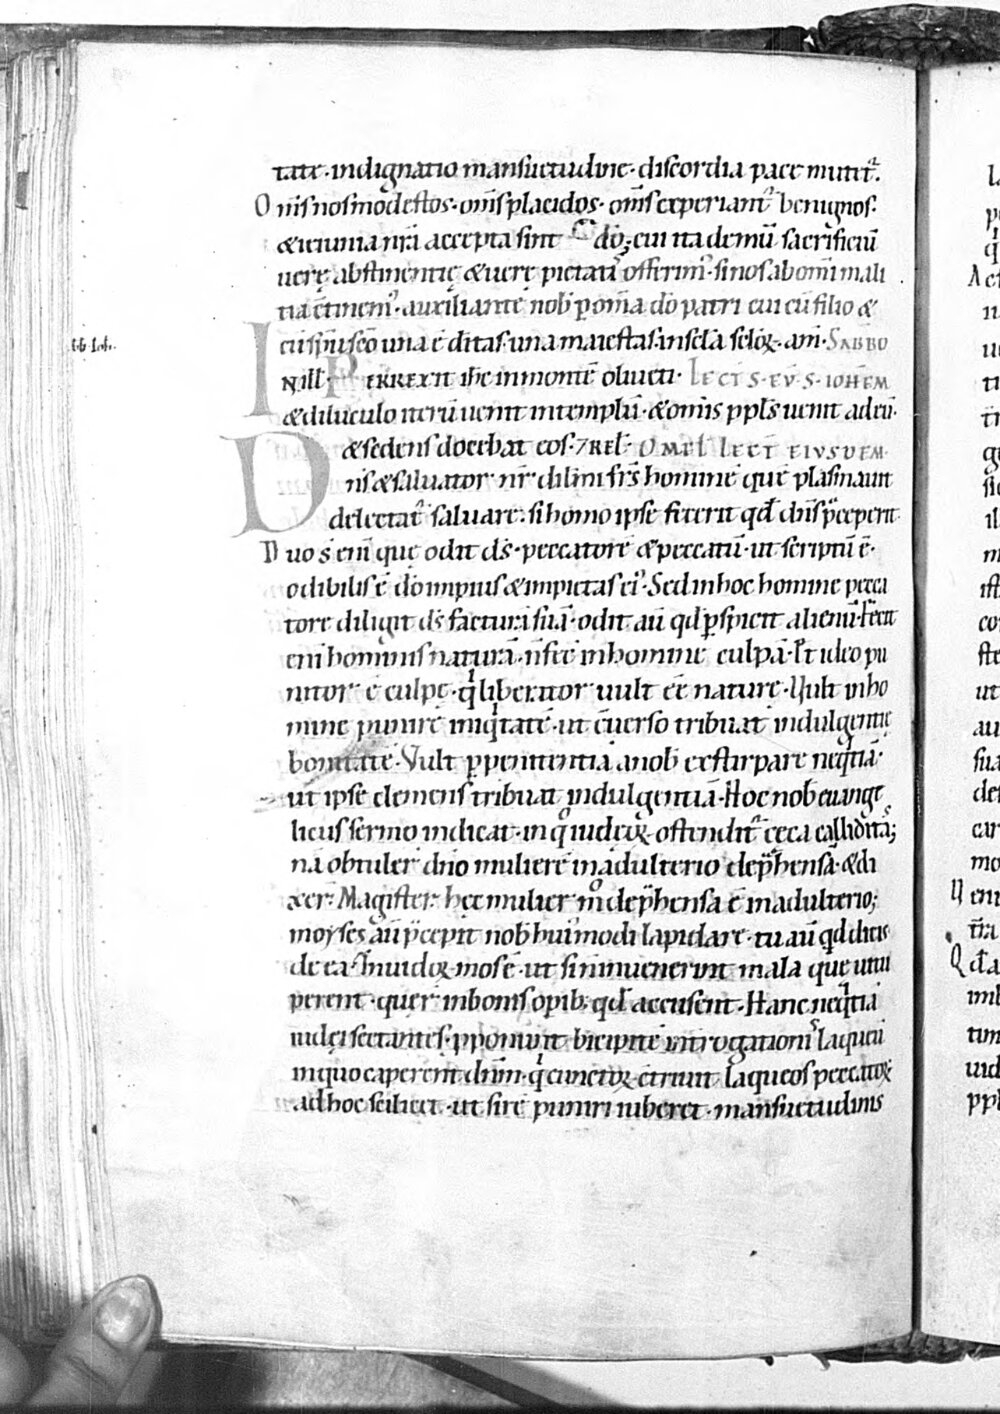 tate · indignatio mansuetudine · discordia pace mutet᷑.
Om̅s nos modestos · om̅s placidos · om̅s experiant᷑ benignos.
& ieiunia nr̅a accepta sint do̅; cui ita demu̅ sacrificiu̅
uerę abstinentię & uerę pietatis offerim᷒ · si nos ab om̅i mali
tia c̅tinem᷒ · auxiliante nob̅ p om̅a do̅ patri cui cu̅ filio &
cu̅ sp̅u sc̅o una e̅ ditas · una maiestas in sc̅la sc̅loꝝ · am̅ · SABBO
IN ill̅ · PERREXIT ih̅c in monte̅ oliueti · LECT S · EV̅ · S · IOHEM
& diluculo iteru̅ uenit in templu̅ · & omnis ppl̅s uenit ad eu̅ ·
& sedens docebat eos · 7 REL̅ · OMEL̅ LECT̅ EIVSDEM
Dn̅s & saluator nr̅ dil̅mi fr̅s homine̅ que̅ plasmauit
delectat᷑ saluare · si homo ipse fecerit qd̅ dn̅s p̅ceperit ·
Duo s̅ eni̅ que odit ds̅ · peccatore̅ & peccatu̅ · ut scriptu̅ e̅ ·
odibilis e̅ do̅ impius & impietas ei᷒ · Sed in hoc homine pecca
tore diligit ds̅ factura̅ sua̅ · odit au̅ qd̅ pspicit alienu̅ · Fecit
eni̅ hominis natura̅ · n̅ fec̅ in homine culpa̅ · Et ideo pu
nitor e̅ culpę · qi liberator uult e̅e naturę · Uult in ho
mine punire iniqtate̅ · ut c̅uerso tribuat indulgentię
bonitate̅ · Vult p penitentia̅ a nob̅ exstirpare neqtia̅ ·
ut ipse clemens tribuat indulgentia̅ · Hoc nob̅ euange
licus sermo indicat · in qo iudeoꝝ ostendit᷑ ceca calliditas;
na̅ obtuler̅ dn̅o muliere̅ in adulterio dep̅hensa̅ · & di
xer̅ · Magister · hec mulier mo dep̅hensa e̅ in adulterio;
moyses au̅ p̅cepit nob̅ hui᷒modi lapidare · tu au̅ qd dicis
de ea · Inuidoꝝ mos e̅ · ut si n̅ inuenerint mala que uitu
perent · quer̅ in bonis opib; qd̅ accusent · Hanc neqtia̅
iudei sectantes · pponunt bicipite̅ introgationis laqueu̅
in quo caperent dn̅m · qi cunctoꝝ c̅triuit laqueos peccatoꝝ
ad hoc scilicet · ut si re̅ puniri iuberet · mansuetudinis